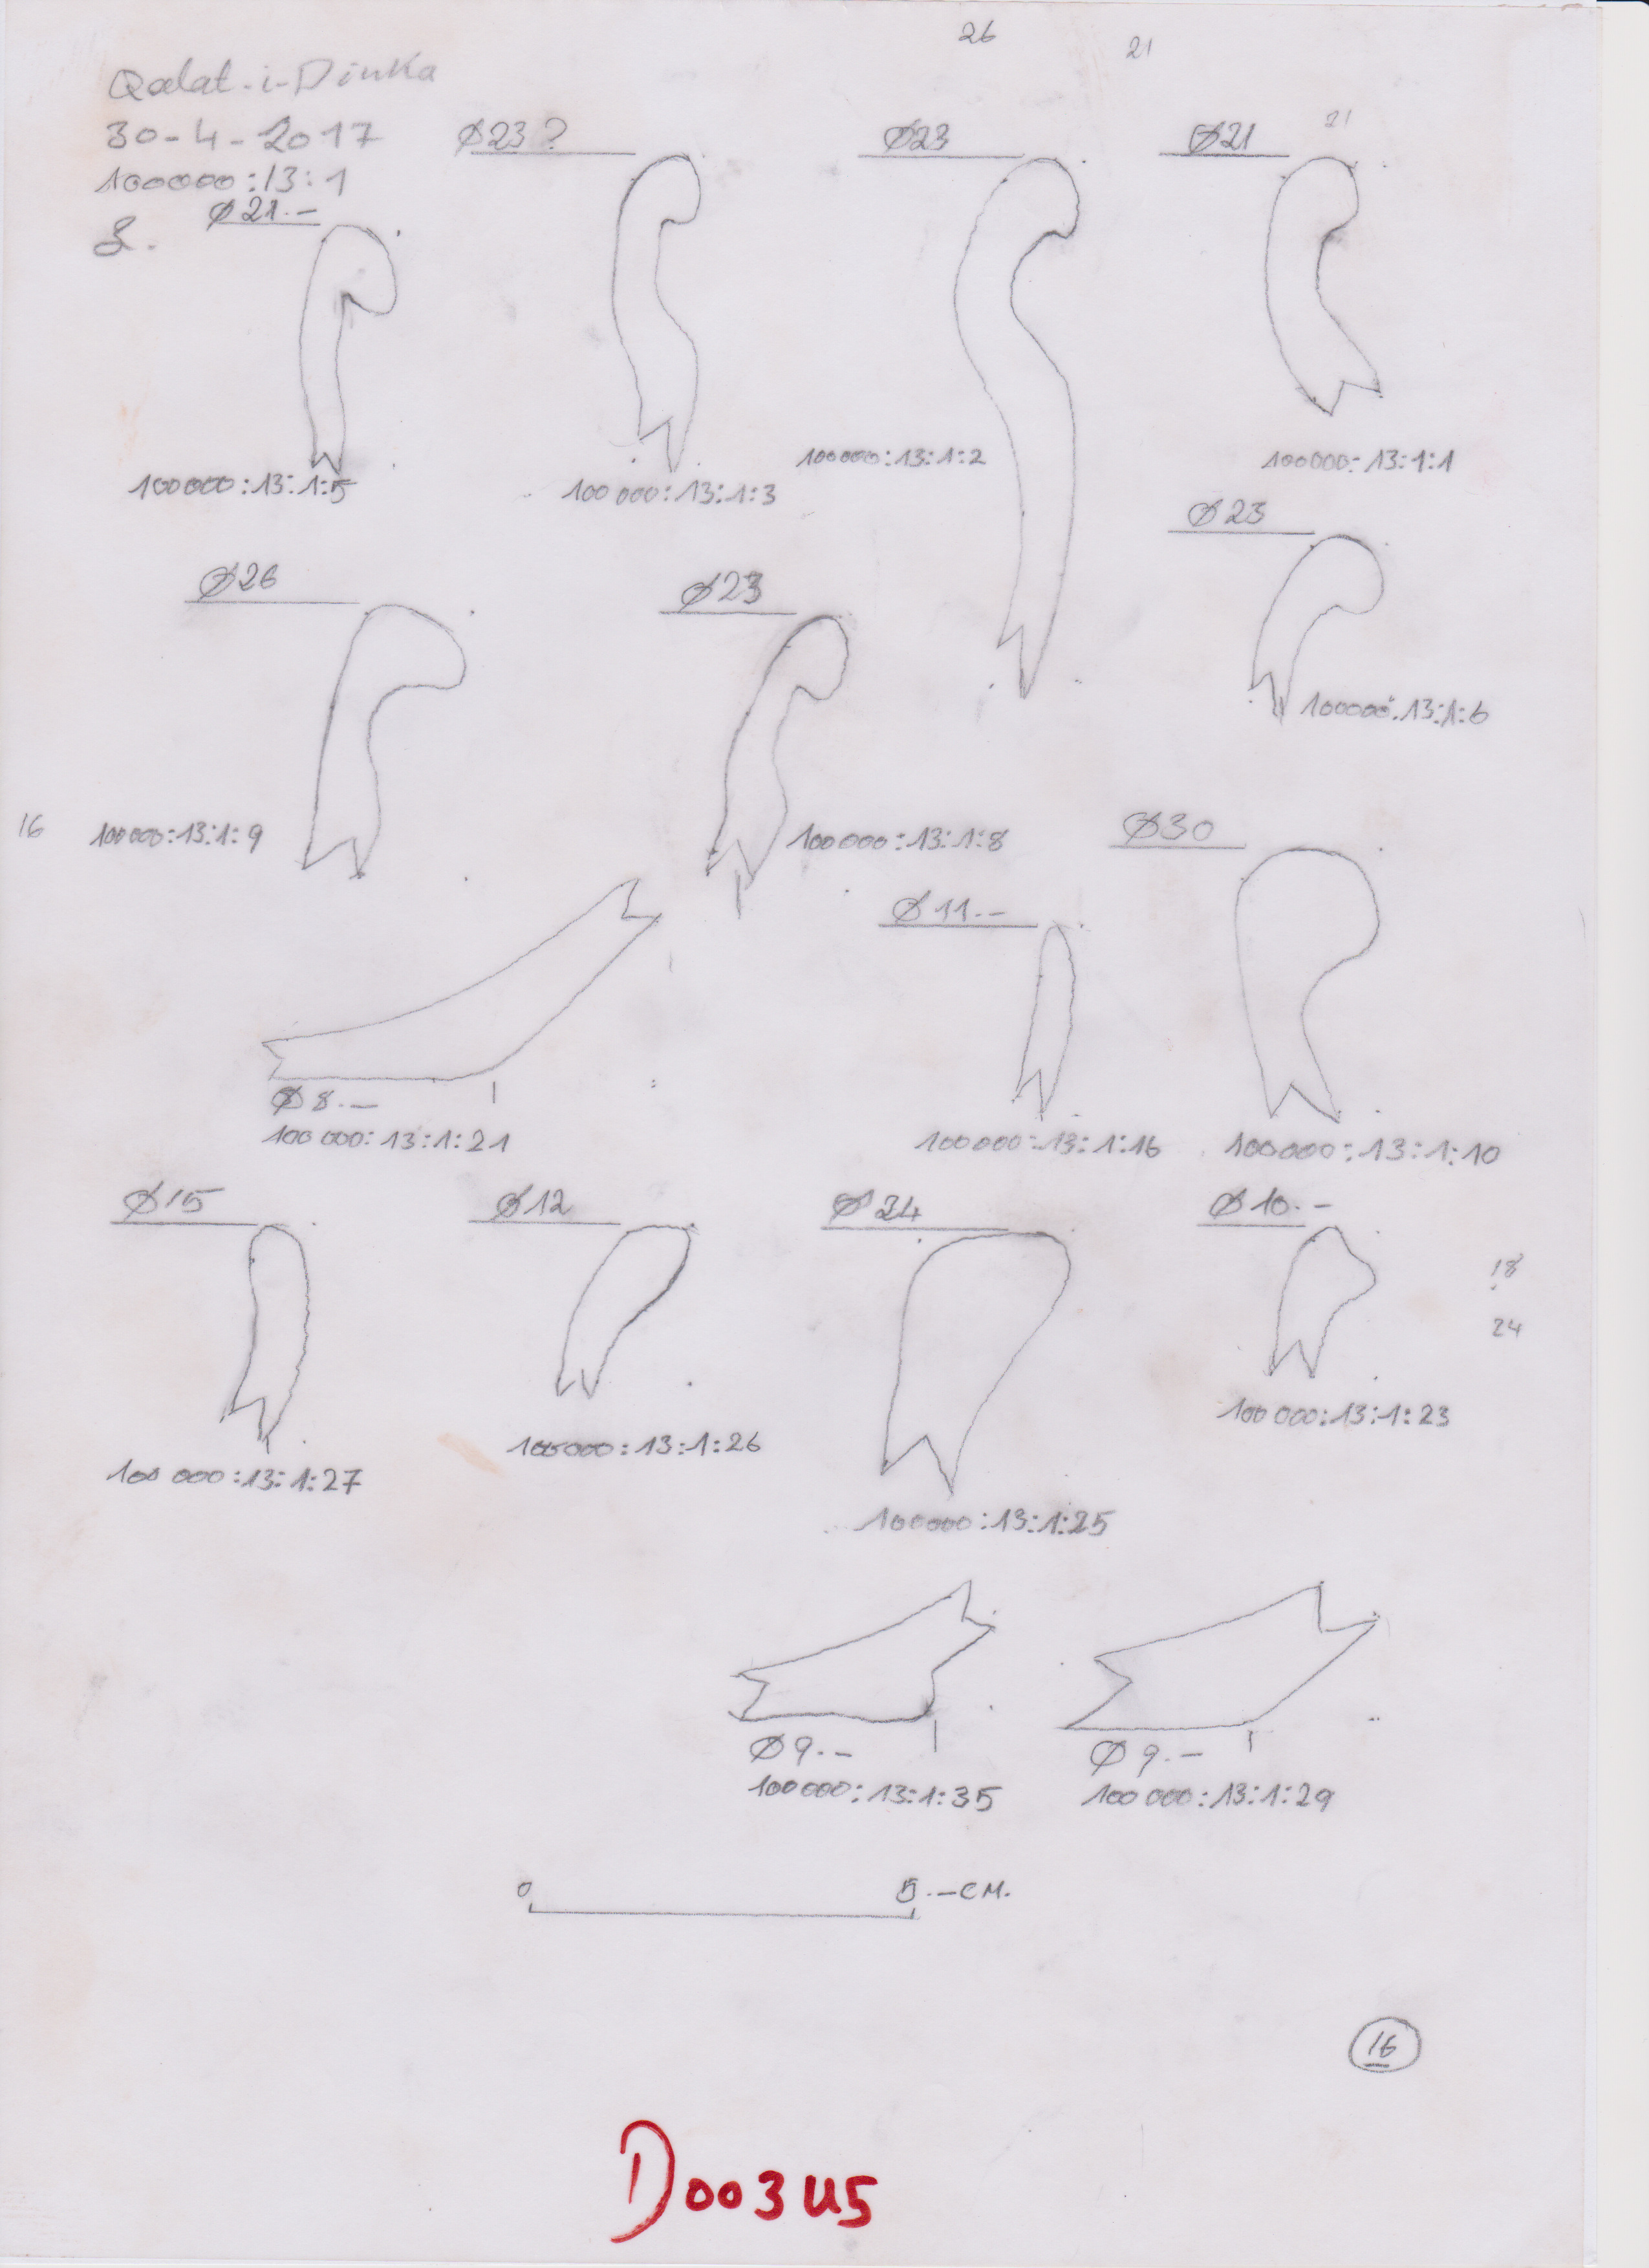 26
21
Qalat-i-Dinka
30-4-2017
100000:13:1
Ø23?
Ø23
Ø21
21
Ø21.-
100000:13:1:5
100000:13:1:3
100000:13:1:2
100000:13:1:1
Ø23
100000:13:1:6
Ø26
Ø23
16
100000:13:1:9
100000:13:1:8
Ø30
Ø11.-
Ø8.-
100000:13:1:21
100000:13:1:16
100000:13:1:10
Ø15
Ø12
Ø10.-
18
24
100000:13:1:27
100000:13:1:26
100000:13:1:25
100000:13:1:23
Ø9.-
100000:13:1:35
Ø9.-
100000:13:1:29
0
5.-CM.
16